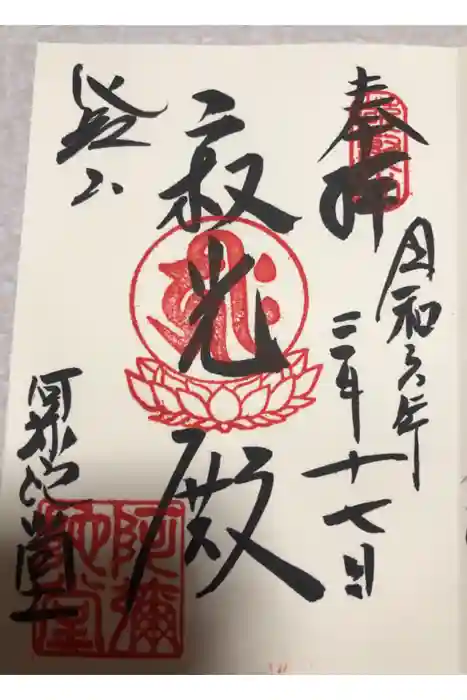 奉拝
令和六年
三月十七日
寂光殿
叡山
阿弥陀堂
阿彌陀堂